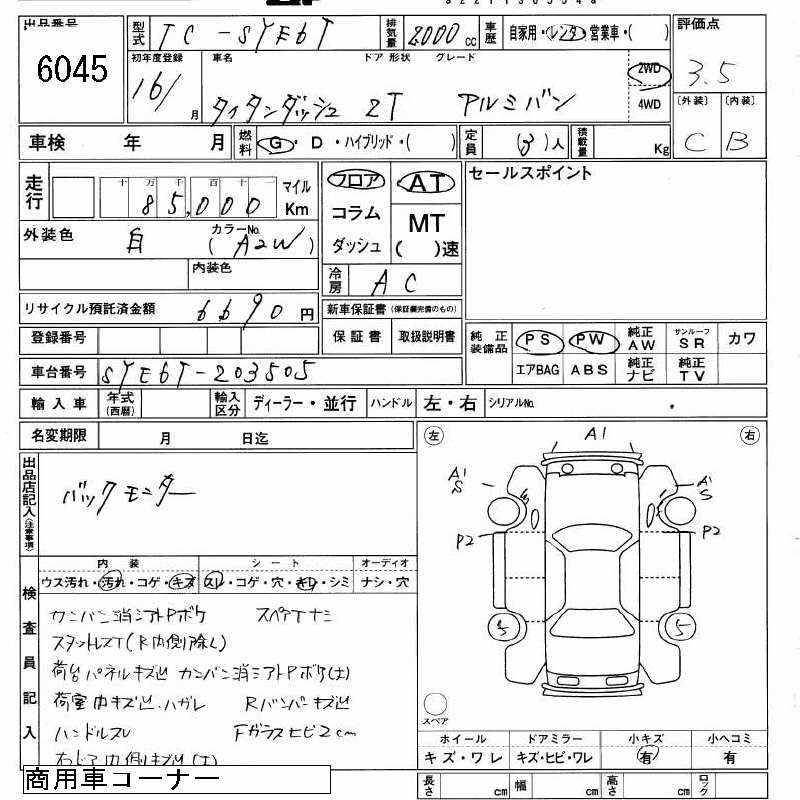 出品番号
6045
型式 TC-SYE6T
排気量 2000 cc
車歴 自家用・レンタ・営業車・( )
評価点
3.5
初年度登録
16/ 月
車名 ドア 形状 グレード
タイタンダッシュ 2T アルミバン
2WD
4WD
〔外装〕 〔内装〕
C B
車検 年 月
燃料 G・D・ハイブリッド・( )
定員 (3)人
積載量 Kg
走行
十 万 千 百 十 一
85,000
マイル
Km
フロア
コラム
ダッシュ
AT
MT
( )速
セールスポイント
外装色 白
カラーNo.
(A2W)
内装色
冷房 AC
リサイクル預託済金額 6690 円
新車保証書(保証欄完備のもの)
保証書 取扱説明書
登録番号
車台番号 SYE6T-203505
純正装備品
PS PW 純正AW サンルーフSR カワ
エアBAG ABS 純正ナビ 純正TV
輸入車 年式(西暦) 輸入区分 ディーラー・並行 ハンドル 左・右 シリアルNo.
名変期限 月 日迄
出品店記入(注意事項)
バックモニター
内装 シート オーディオ
ウス汚れ・汚れ・コゲ・キズ スレ・コゲ・穴・キレ・シミ ナシ・穴
検査員記入
カンバン消シアトPボケ スペアTナシ
スタットレスT(R内側除く)
荷台パネルキズ凹 カンバン消シアトPボケ(大)
荷室内キズ凹.ハガレ Rバンパーキズ凹
ハンドルスレ Fガラスヒビ2cm
右ドア内側リキズ凹(大)
左 A1 右
A1
S
A1
S
P2 P2
5 5
スペア
ホイール ドアミラー 小キズ 小ヘコミ
キズ・ワレ キズ・ヒビ・ワレ 有 有
長さ cm 幅 cm 高さ cm ロック
商用車コーナー